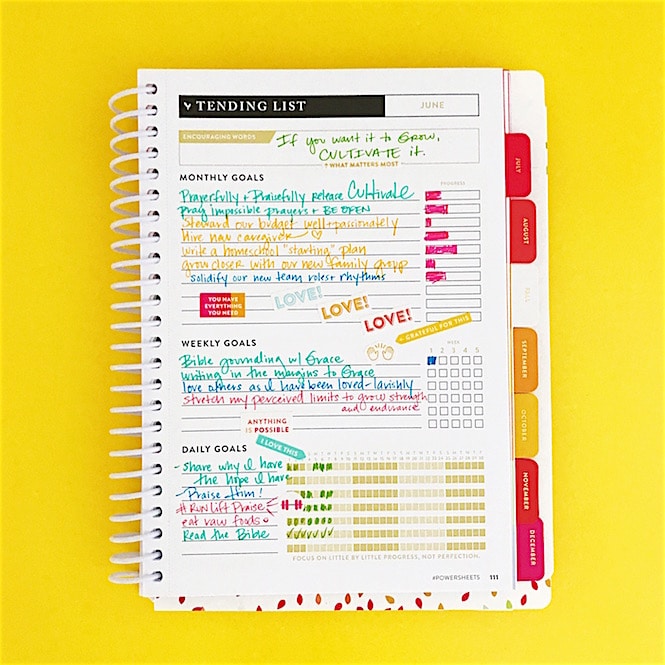 TENDING LIST JUNE
ENCOURAGING WORDS
If you want it to Grow,
CULTIVATE it.
↑ WHAT MATTERS MOST
MONTHLY GOALS PROGRESS
Prayerfully + Praisefully release Cultivate
pray impossible prayers + BE OPEN
Steward our budget well + passionately
Hire new caregiver
write a homeschool "starting" plan
grow closer with our new family group
solidify our new team roles + rhythms
YOU HAVE
EVERYTHING
YOU NEED
LOVE!
LOVE!
LOVE!
GRATEFUL FOR THIS
WEEKLY GOALS WEEK
1 2 3 4 5
Bible journaling w/ Grace
writing in the margins to Grace
love others as I have been loved - lavishly
stretch my perceived limits to grow strength
and endurance
ANYTHING
IS POSSIBLE
I LOVE THIS
DAILY GOALS
- share why I have
the hope I have
- Praise Him!
# RUN LIFT Praise
eat raw foods
Read the Bible
FOCUS ON LITTLE BY LITTLE PROGRESS, NOT PERFECTION.
#POWERSHEETS 111
JULY
AUGUST
FALL
SEPTEMBER
OCTOBER
NOVEMBER
DECEMBER